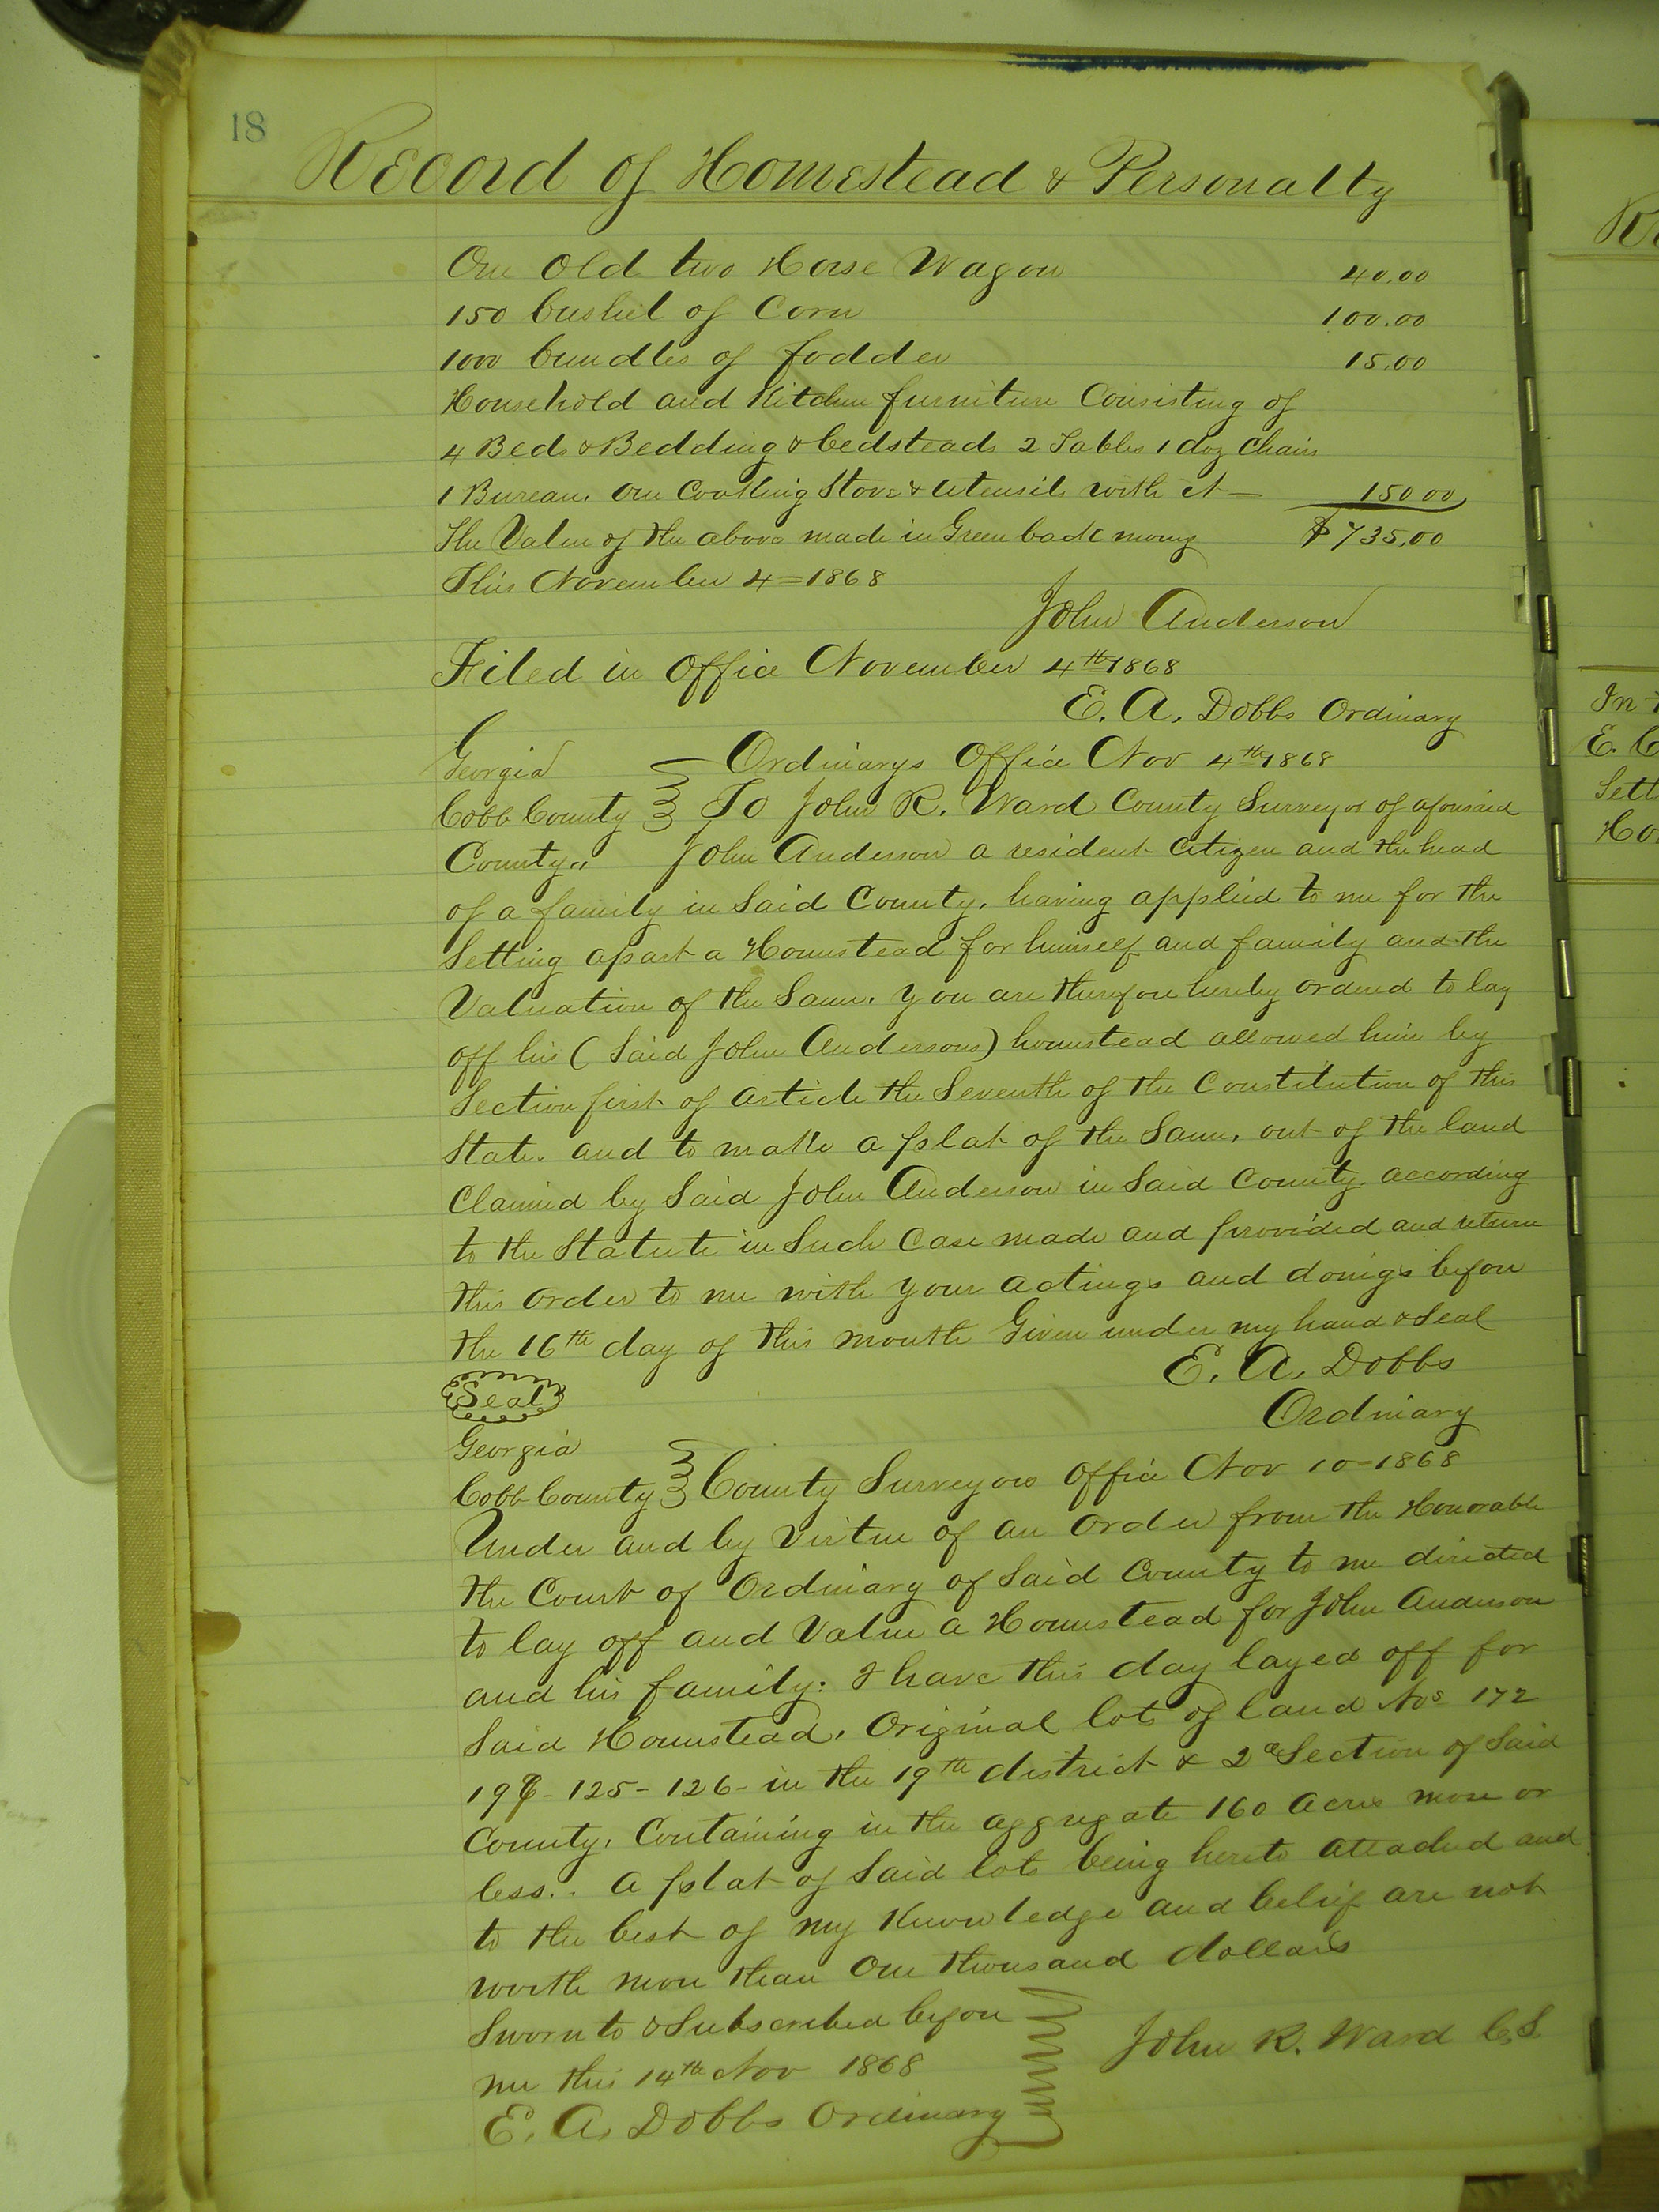 18
Record of Homestead & Personalty
One Old two Horse Wagon 40.00
150 bushel of Corn 100.00
1000 bundles of fodder 15.00
Household and Kitchen furniture Consisting of
4 Beds & Bedding & bedsteads 2 Tables 1 doz Chairs
1 Bureau. One Cooking Stove & Utensils with it — 150 00
The Value of the above made in Green back money $735,00
This November 4=1868
John Anderson
Filed in Office November 4th 1868
E. A. Dobbs Ordinary
Georgia Ordinarys Office Nov 4th 1868
Cobb County To John R. Ward County Surveyor of aforesaid
County,, John Anderson a resident Citizen and the head
of a family in Said County, having applied to me for the
Setting apart a Homestead for himself and family and the
Valuation of the Same. You are therefore hereby ordered to lay
off his (Said John Andersons) homestead allowed him by
Section first of article the Seventh of the Constitution of this
State. and to make a plat of the Same, out of the land
Claimed by Said John Anderson in Said County. according
to the Statute in Such Case made and provided and return
this order to me with your actings and doings before
the 16th day of this month Given under my hand & Seal
E. A. Dobbs
Seal
Ordinary
Georgia
Cobb County County Surveyors Office Nov 10-1868
Under and by Virtue of an Order from the Honorable
the Court of Ordinary of Said County to me directed
to lay off and Value a Homestead for John Anderson
and his family: I have this day layed off for
Said Homestead, Original lots of land Nos 172
199- 125- 126- in the 19th district & 2d Section of Said
County, Containing in the aggregate 160 Acres more or
less.. a plat of Said lots being hereto attached and
to the best of my Knowledge and belief are not
worth more than One thousand dollars
Sworn to & Subscribed before
me this 14th Nov 1868 John R. Ward C.S.
E. A. Dobbs Ordinary
In
E. C
Sett
Ho